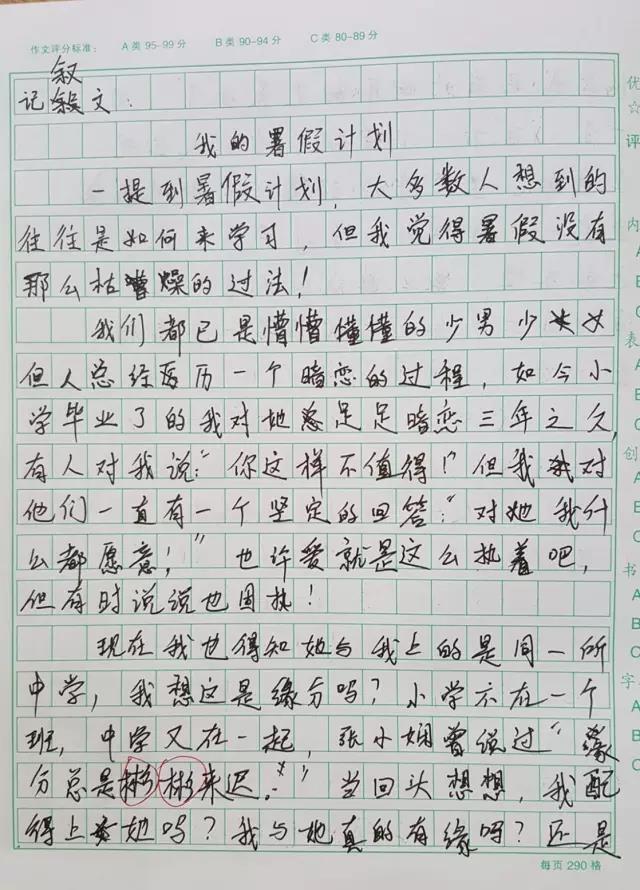 作文评分标准： A类 95-99分 B类 90-94分 C类 80-89分
叙
记叙文：
我的暑假计划
一提到暑假计划，大多数人想到的
往往是如何来学习，但我觉得暑假没有
那么枯燥的过法！
我们都已是懵懵懂懂的少男少女
但人总经历一个暗恋的过程，如今小
学毕业了的我对她总足足暗恋三年之久，
有人对我说：“你这样不值得！”但我对
他们一直有一个坚定的回答：“对她我什
么都愿意！” 也许爱就是这么执着吧，
但有时说说也固执！
现在我也得知她与我上的是同一所
中学，我想这是缘分吗？小学不在一个
班，中学又在一起，张小娴曾说过“缘
分总是彬彬来迟。” 当回头想想，我配
得上她吗？我与她真的有缘吗？还是
每页 290 格
优
☆
评
内
A
B
C
表
A
B
C
创
A
B
C
书
A
B
C
字
A
B
C